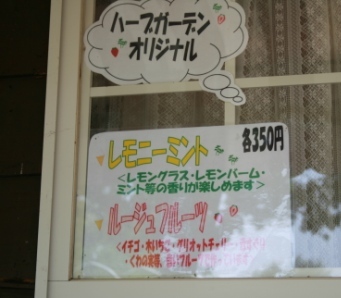 ハーブガーデン
オリジナル
各350円
レモニーミント
<レモングラス・レモンバーム・
ミント等の香りが楽しめます>
ルージュフルーツ
<イチゴ・木いちご・グリオットチェリー・
・くわの実等、赤いフルーツ